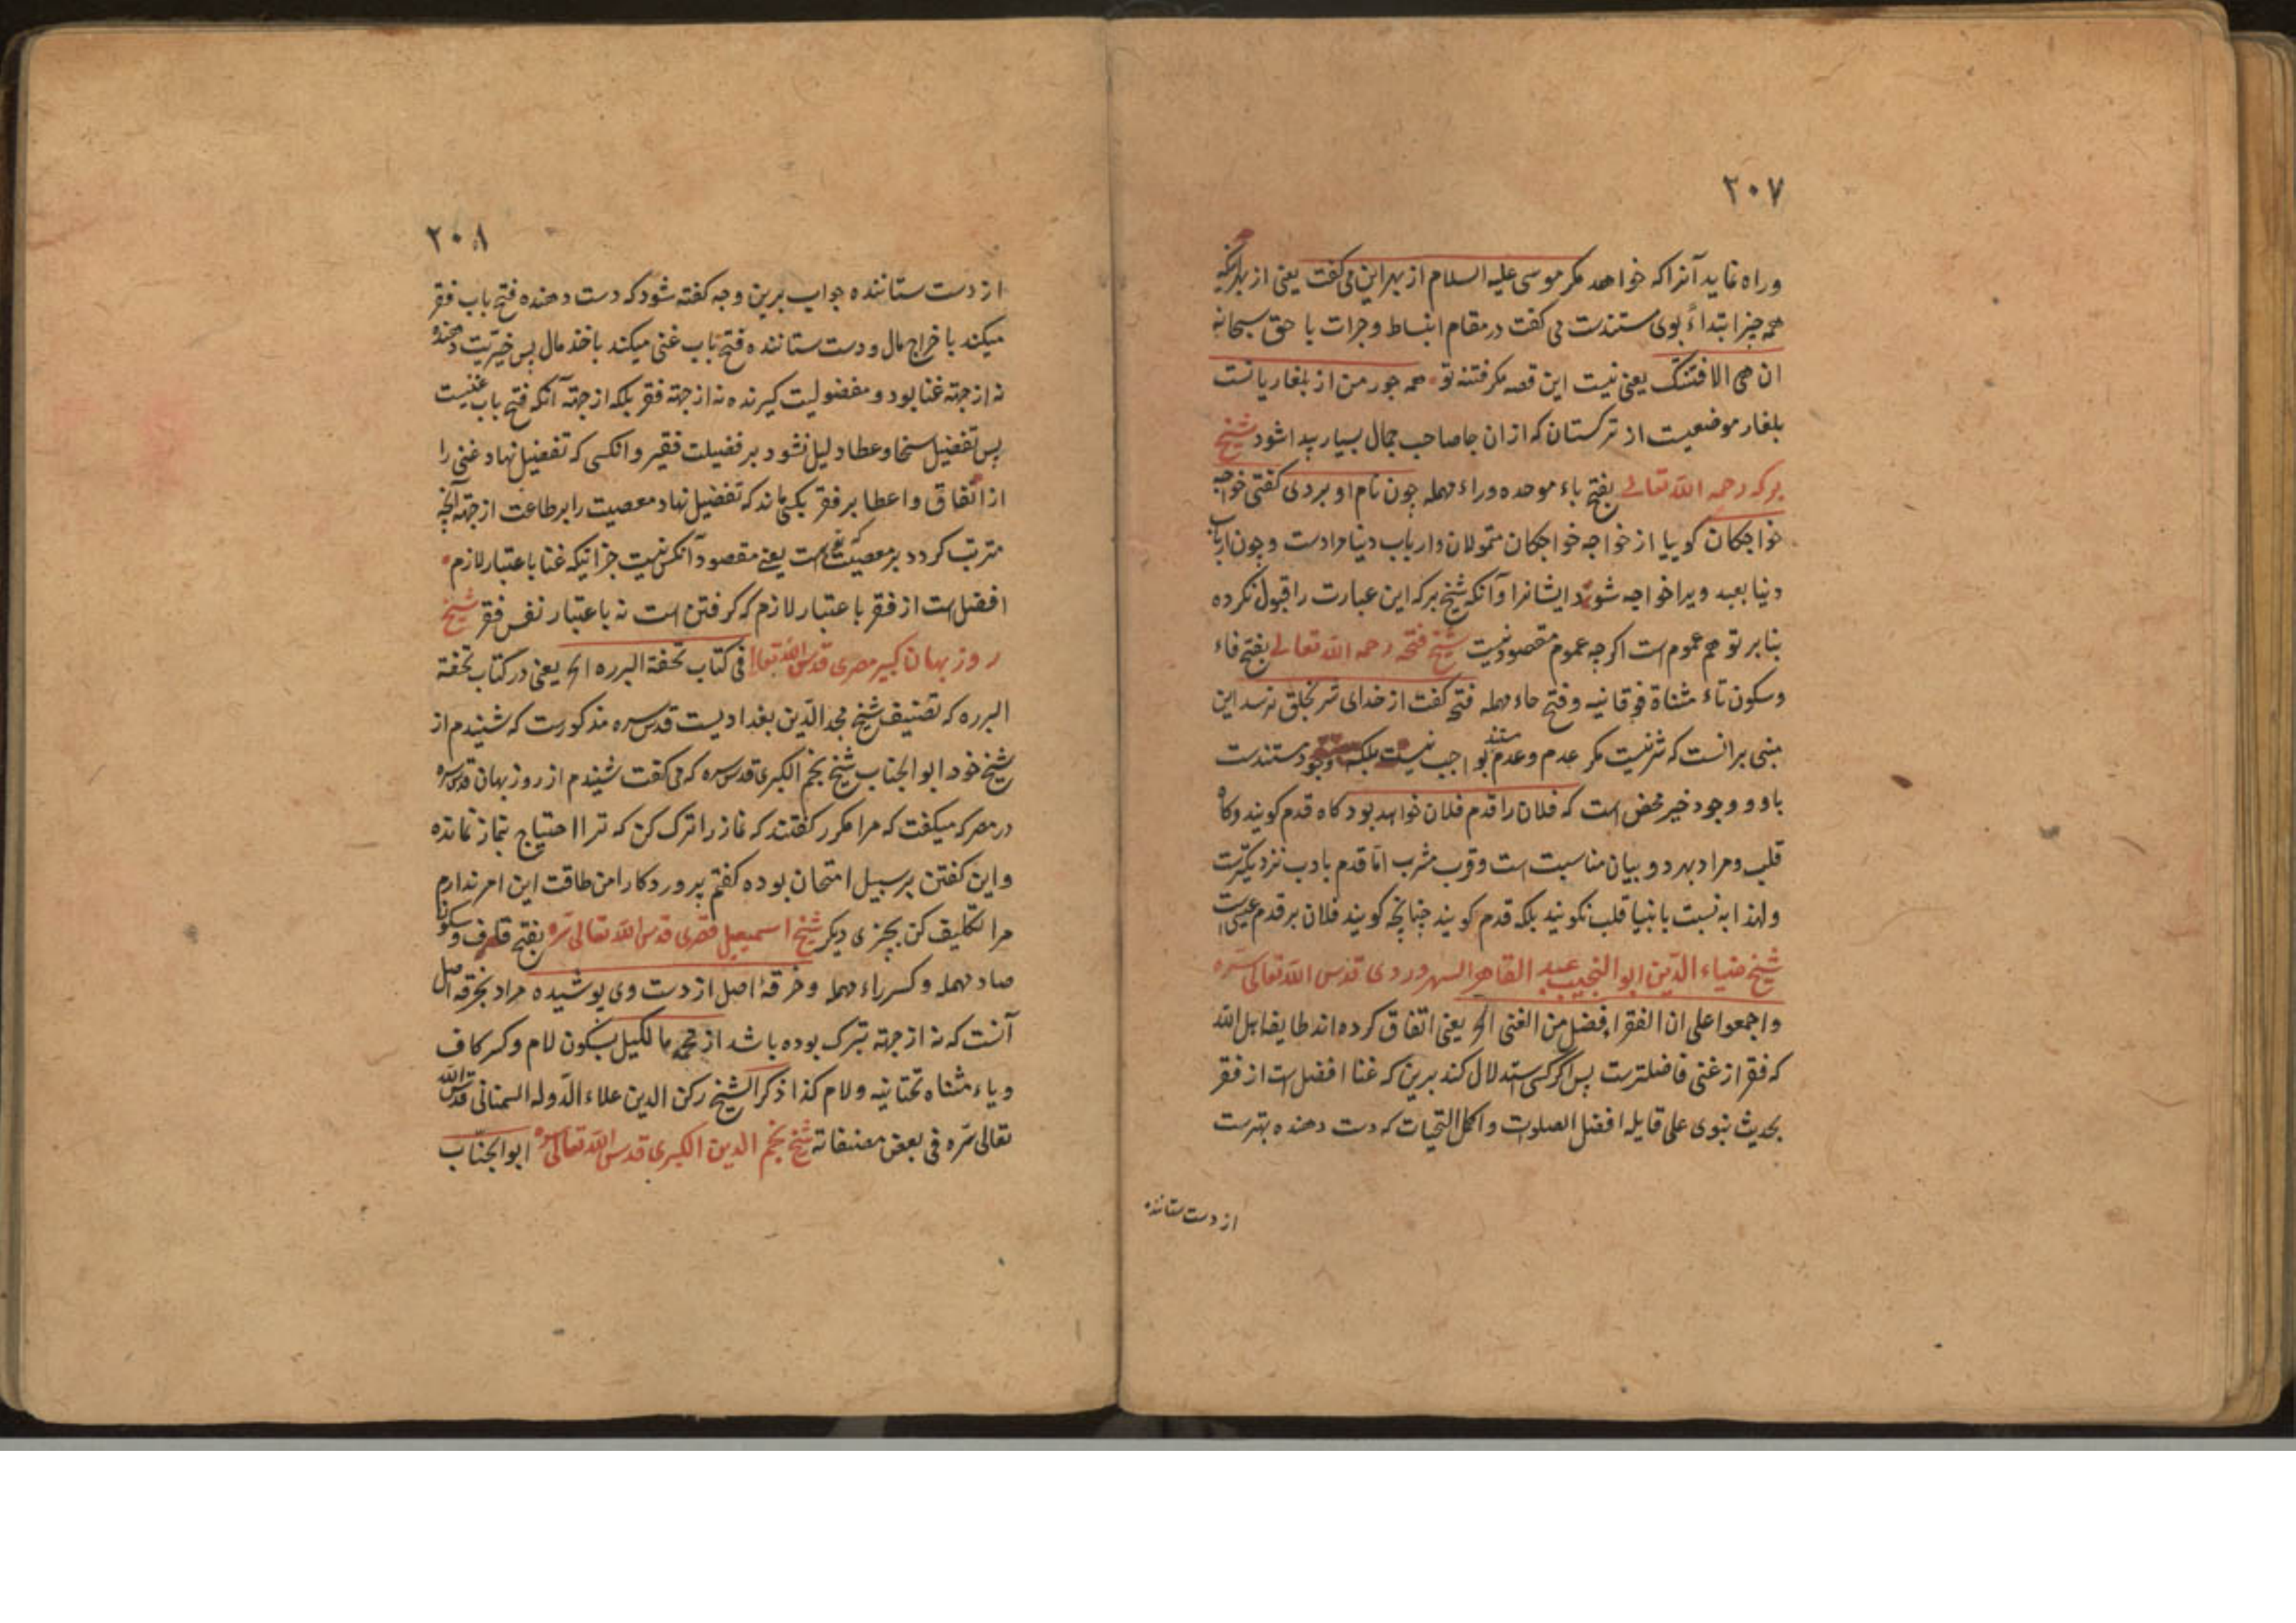 ۲۰۷
وراه نماید آنرا که خواهد مکر موسی علیه السلام از بهر این می کفت یعنی از بهر آنکه
همه چیز ابتداءً بوی مستندست می کفت در مقام انبساط وجرات با حق سبحانه
ان هی الا فتنتک یعنی نیست این قصه مکر فتنه تو همه جور من از بلغاریانست
بلغار موضعیت از ترکستان که ازان جا صاحب جمال بسیار پیدا شود شیخ
برکه رحمه الله تعالی بفتح باء موحده وراء مهمله چون نام او بردی کفتی خواجه
خواجکان کوییا از خواجه خواجکان متمولان وارباب دنیا مرادست وچون ارباب
دنیا بعبد ویرا خواجه شود ایشانرا وآنکه شیخ برکه این عبارت را قبول نکرده
بنابر توهم عموم است اکرچه عموم مقصود نیست شیخ فتحه رحمه الله تعالی بفتح فاء
وسکون تاء مثناة فوقانیه وفتح حاء مهمله فتحه کفت از خدای شر بخلق نرسد این
مبنی برانست که شر نیست مکر عدم وعدم مستند بواجب نیست بلکه وجود مستندست
باو و وجود خیر محض است که فلان را قدم فلان خواهد بود کاه قدم کویند وکاه
قلب ومراد بهر دو بیان مناسبت است وقرب مشرب اما قدم بادب نزدیکترست
ولهذا به نسبت بانبیا قلب نکویند بلکه قدم کویند چنانچه کویند فلان بر قدم عیسی است
شیخ ضیاء الدین ابو النجیب عبد القاهر السهروردی قدس الله تعالی سره
واجمعوا علی ان الفقر افضل من الغنی الخ یعنی اتفاق کرده اند طایفه اهل الله
که فقر از غنی فاضلترست پس اکر کسی استدلال کند برین که غنا افضل است از فقر
بحدیث نبوی علی قایله افضل الصلوات واکمل التحیات که دست دهنده بهترست
از دست ستاننده
۲۰۸
از دست ستاننده جواب برین وجه کفته شود که دست دهنده فتح باب فقر
میکند باخراج مال ودست ستاننده فتح باب غنی میکند باخذ مال پس خیریت دهنده
نه از جهته غنا بود ومفضولیت کیرنده نه از جهته فقر بلکه از جهته آنکه فتح باب غنیست
پس تفضیل سخا وعطا دلیل نشود بر فضیلت فقیر وانکسی که تفضیل نهاد غنی را
از انفاق واعطا بر فقر بکسی ماند که تفضیل نهاد معصیت را بر طاعت از جهته آنچه
مترتب کردد بر معصیت است یعنی مقصود آنکس نیست جز اینکه غنا باعتبار لازم
افضل است از فقر باعتبار لازم که کرفتن است نه باعتبار نفس فقر شیخ
روزبهان کبیر مصری قدس الله تعالی فی کتاب تحفة البرره الخ یعنی در کتاب تحفة
البرره که تصنیف شیخ مجد الدین بغدادیست قدس سره مذکورست که شنیدم از
شیخ خود ابو الجناب شیخ نجم الکبری قدس سره که می کفت شنیدم از روزبهان قدس سره
در مصر که میکفت که مرا مکرر کفتند که نماز را ترک کن که ترا احتیاج بنماز نمانده
واین کفتن بر سبیل امتحان بوده کفتم پروردکارا من طاقت این امر ندارم
مرا تکلیف کن بچیزی دیکر شیخ اسمعیل قصری قدس الله تعالی سره بفتح قاف وسکون
صاد مهمله وکسر راء مهمله وخرقهٔ اصل از دست وی پوشیده مراد بخرقه اصل
آنست که نه از جهته تبرک بوده باشد از محمد مالکیل بسکون لام وکسر کاف
ویاء مثناه تحتانیه ولام کذا ذکر الشیخ رکن الدین علاء الدوله السمنانی قدس الله
تعالی سره فی بعض مصنفاته شیخ نجم الدین الکبری قدس الله تعالی سره ابو الجناب